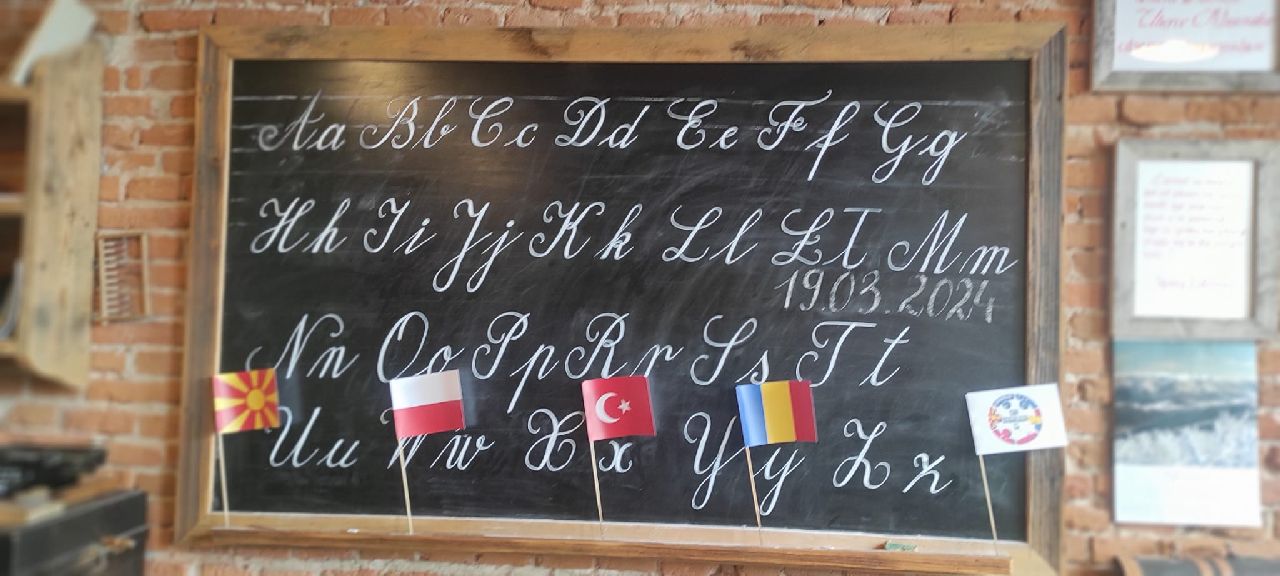 Aa Bb Cc Dd Ee Ff Gg
Hh Ii Jj Kk Ll Łł Mm
19.03.2024
Nn Oo Pp Rr Ss Tt
Uu Ww Xx Yy Zz